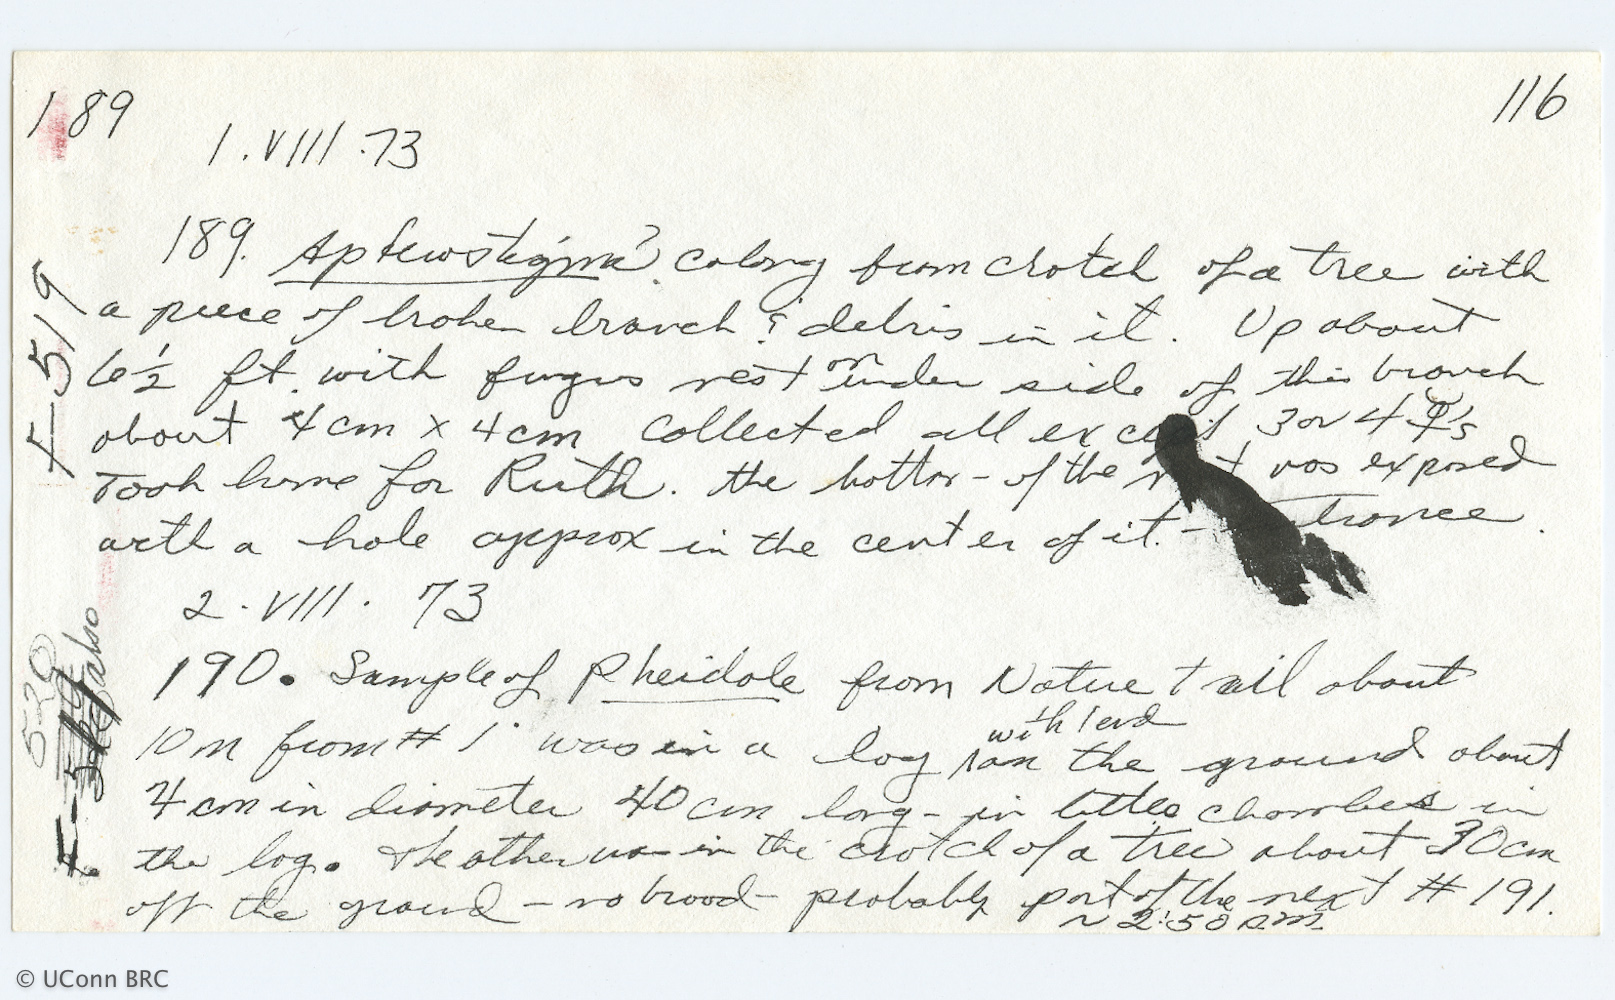 189
116
1.VIII.73
189. Apterostigma? colony from crotch of a tree with
a piece of broken branch & debris in it. Up about
6½ ft. with fungus nest on under side of this branch
about 4 cm x 4 cm Collected all except 3 or 4 ☿'s
Took home for Ruth. the bottom - of the nest was exposed
with a hole approx in the center of it. - entrance.
2.VIII.73
190. Sample of Pheidole from Nature trail about
10 m from # 1 was in a log with 1 end on the ground about
4 cm in diameter 40 cm long - in little chambers in
the log. The other was in the crotch of a tree about 30 cm
off the ground - no brood - probably part of the nest # 191.
~ 2:50 p.m.
F-519
520
also
© UConn BRC